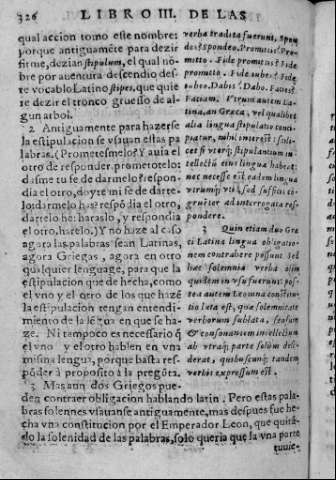 326 LIBRO III. DE LAS
qual accion tomo este nombre:
porque antiguamẽte para dezir
firme, dezian stipulum, el qual nõ
bre por auentura descendio des-
te vocablo Latino stipes, que quie
re dezir el tronco gruesso de al-
gun arbol.
2 Antiguamente para hazerse
la estipulacion se vsauan estas pa
labras. (Prometesmelo? Y auia el
otro de responder, prometotelo:
dasme tu fe de darmelo? respon-
dia el otro, doyte mi fe de darte-
lo: darmelo has? respõdia el otro,
dartelo he: haraslo, y respondia
el otro, harelo.) Y no haze al caso
agora las palabras sean Latinas,
agora Griegas, agora en otro
qualquier lenguage, para que la
estipulacion que de hecha, como
el vno y el otro de los que hazẽ
la estipulacion tengan entendi-
miento de la lẽgua en que se ha-
ze. Ni tampoco es necessario q̃
el vno y el otro hablen en vna
misma lengua, porque basta res-
põder à proposito à la pregũta.
3 Mas aun dos Griegos pue-
den contraer obligacion hablando latin. Pero estas pala-
bras solennes vsauanse antiguamente, mas despues fue he-
cha vna constitucion por el Emperador Leon, que quitã-
do la solenidad de las palabras, solo queria que la vna parte
verba tradita fuerunt. Spon-
des? Spondeo. Promittis? Pro-
mitto. Fide promittis? Fide
promitto. Fide iubes? Fide
iubeo. Dabis? Dabo. Facies?
Faciam. Vtrum autem La-
tina, an Græca, vel qualibet
alia lingua stipulatio conci-
piatur, nihil interest: sci-
licet si vterq; stipulantium in
tellectũ eius lingua habeat:
nec necesse est eadem lingua
vtrumq; vti, sed sufficit cõ-
gruẽter ad interrogata res-
pondere.
3 Quin etiam duo Græ
ci Latina lingua obligatio-
nem contrahere possunt. Sed
hæc solemnia verba olim
quidem in vsu fuerunt: pos-
tea autem Leonina constitu-
tio lata est, quæ solemnitate
verborum sublata, sensum
& consonantem intellectum
ab vtraq; parte solùm desi-
derat, quibuscunq; tandem
verbis expressum est.